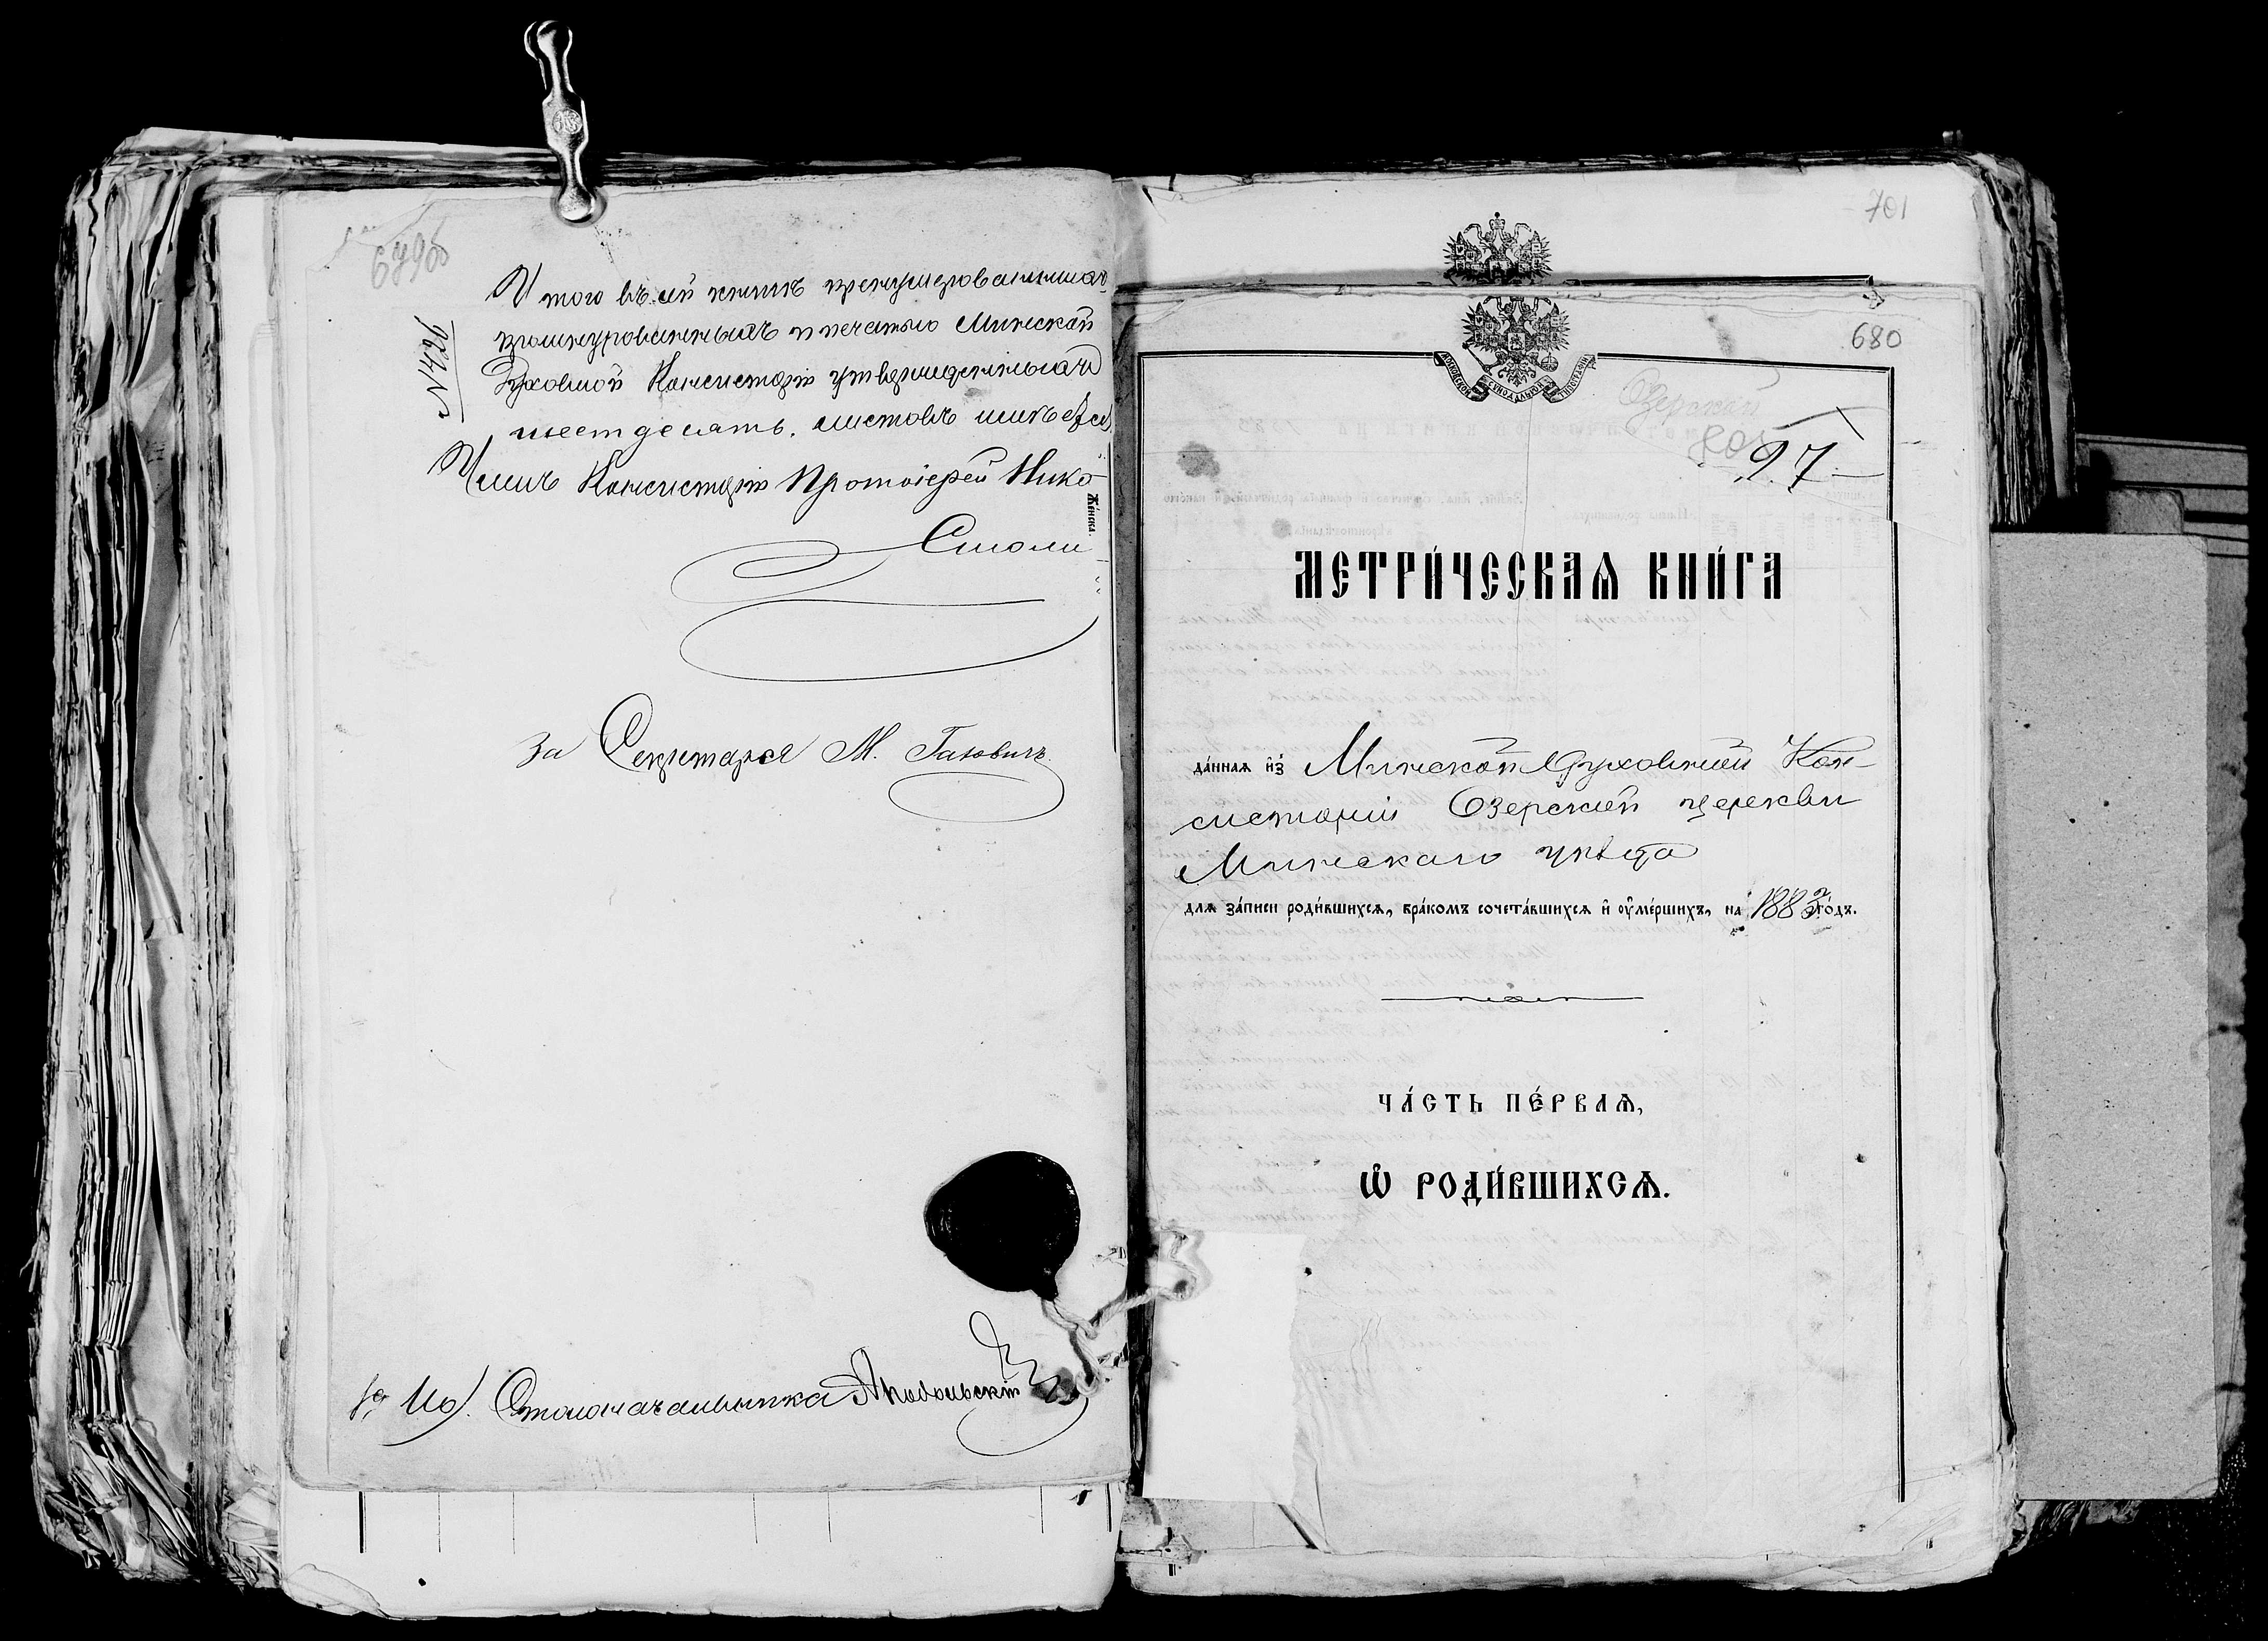 679об
№ 426
Итого въ сей книгѣ пренумерованныхъ
прошнурованныхъ и печатью Минской
Духовной Консисторіи утвержденныхъ
шестдесять листовъ имѣется
Членъ Консисторіи Протоіерей Нико
Смоли
За Секретаря М.
Столоначальника
Женска.
701
680
МОСКОВСКОЙ СѴНОДАЛЬНОЙ ТИПОГРАФІИ
Озерской
97
МЕТРИ́ЧЕСКАѦ КНИ́ГА
да́ннаѧ и҆з̾ Минской Духовной Кон-
систоріи Озерской церкви
Минскаго уѣзда
для за́писи роди́вшихсѧ, бра́комъ сочета́вшихсѧ и҆ ᲂу҆ме́ршихъ, на 1883 го́дъ.
ЧА́СТЬ ПЕ́РВАѦ,
Ѡ҆ РОДИ́ВШИХСѦ.